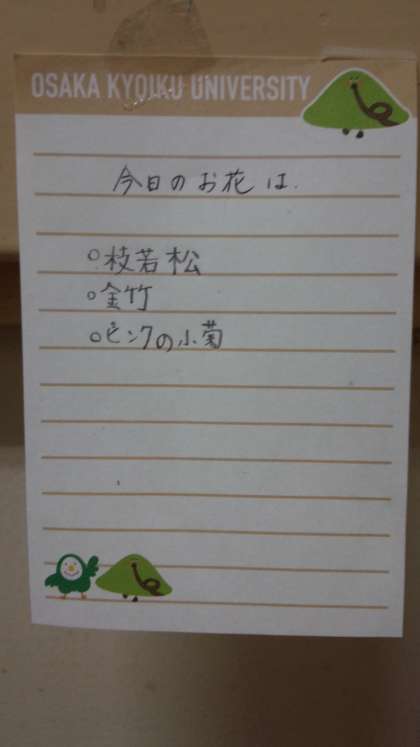 OSAKA KYOIKU UNIVERSITY
今日のお花は.
○枝若松
○金竹
○ピンクの小菊